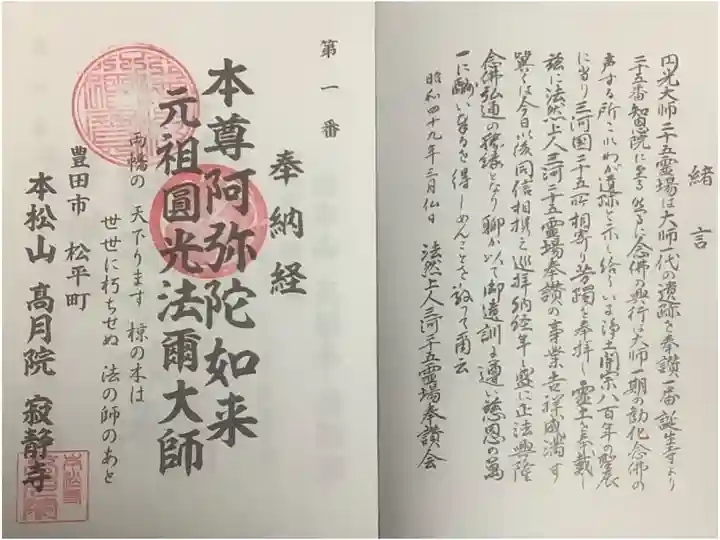 緒言
円光大師二十五霊場は大師一代の遺跡を奉讃一番誕生寺より
二十五番知恩院に至る 然るに念佛の興行は大師一期の勧化念佛の
声する所これわが遺跡と示し給う いま浄土開宗八百年の聖辰
に当り三河国二十五ヶ所相寄り芳躅を奉拝し霊土を奉戴し
茲に法然上人三河二十五霊場奉讃の事業吉祥成満す
冀くは今日以後同信相携え巡拝納経年と盛に正法興隆
念佛弘通の強縁となり聊か以て御遺訓に遵い慈恩の萬
一に酬い奉るを得しめんことを敬って爾云
昭和四十九年三月仏日 法然上人三河二十五霊場奉讃会
第一番
奉納経
本尊阿弥陀如来
元祖圓光法爾大師
両幡の 天下ります 椋の木は
世世に朽ちせぬ 法の師のあと
豊田市 松平町
本松山 高月院 寂静寺